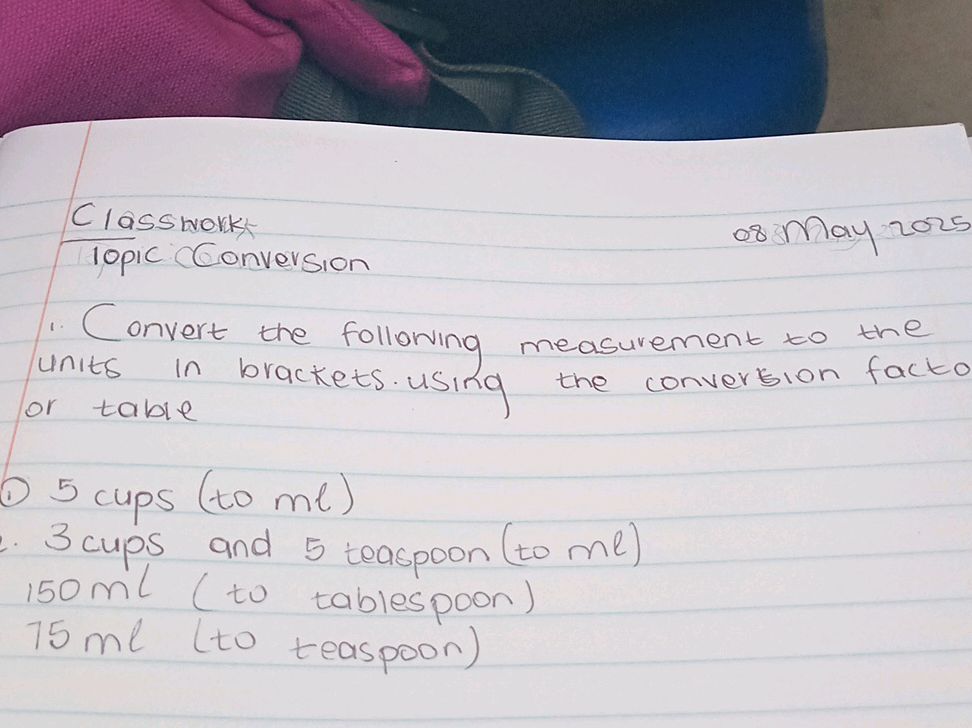 Classwork
08 May 2025
Topic: Conversion
1. Convert the following measurement to the
units in brackets. using the conversion facto
or table
① 5 cups (to ml)
2. 3 cups and 5 teaspoon (to ml)
150 ml (to tablespoon)
75 ml (to teaspoon)